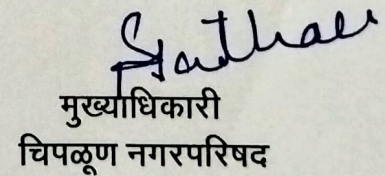 मुख्याधिकारी
चिपळूण नगरपरिषद